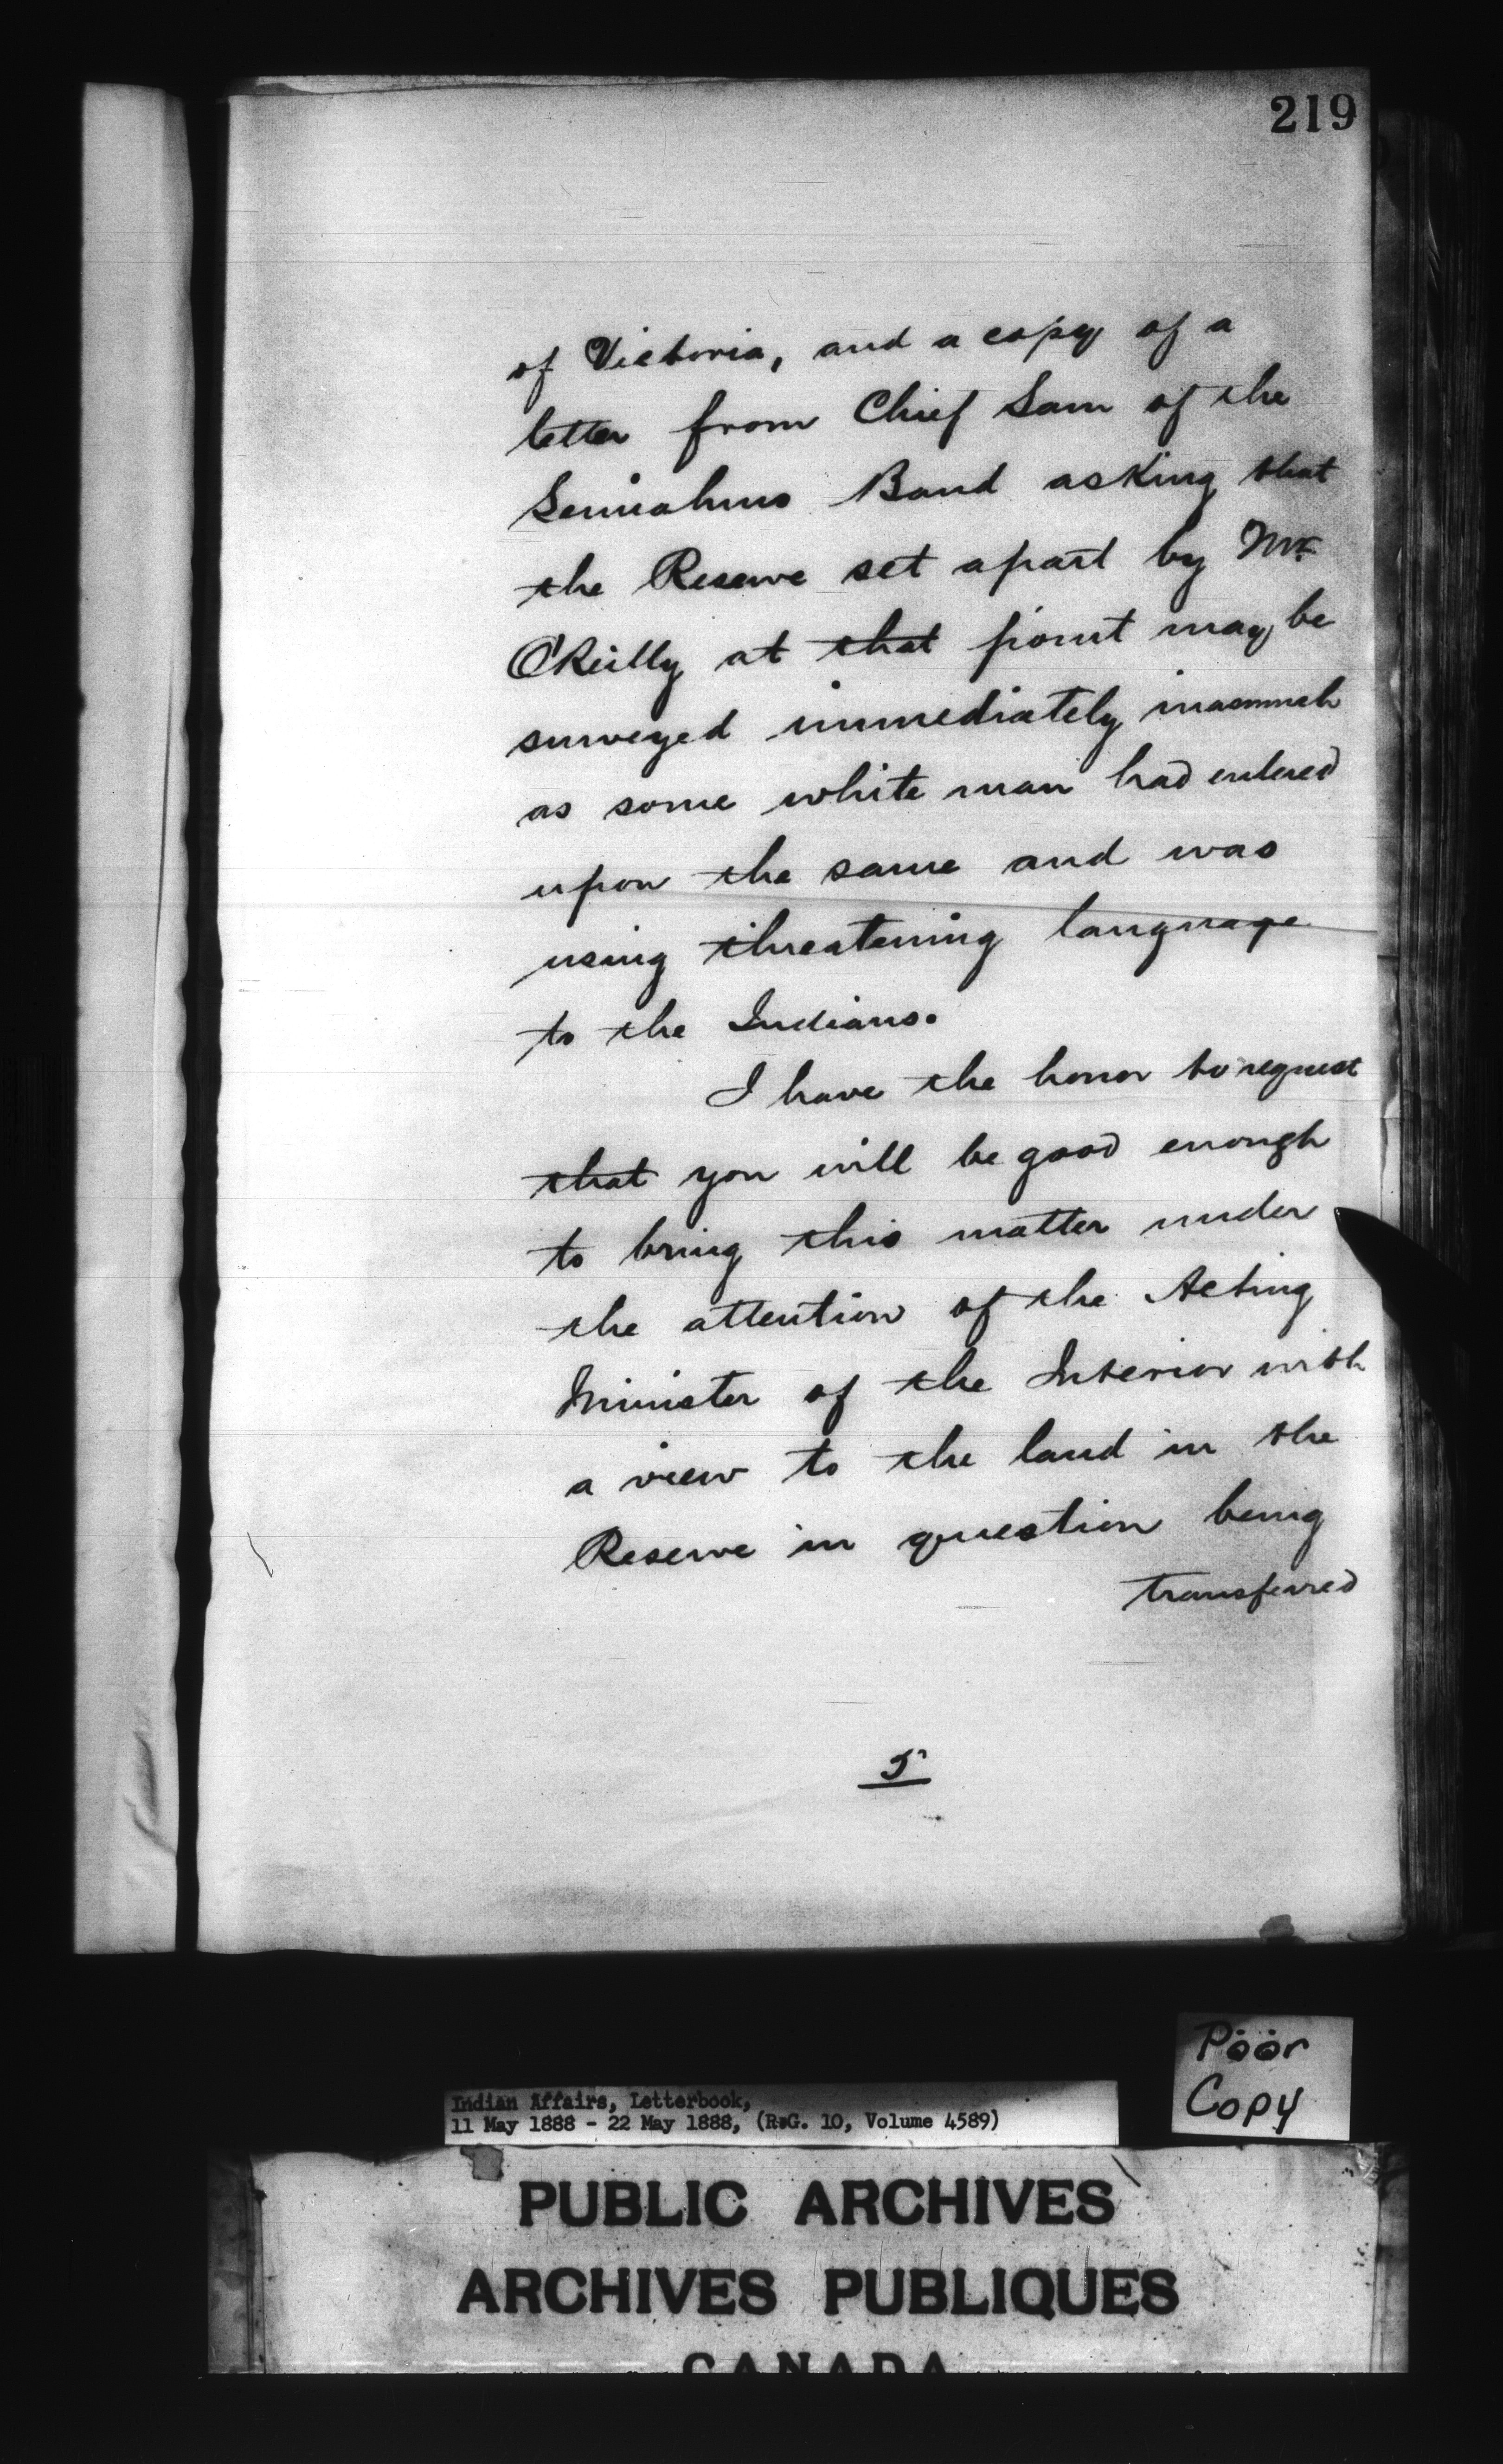 219
of Victoria, and a copy of a
letter from Chief Sam of the
Semiahmo Band asking that
the Reserve set apart by Mr.
O'Reilly at that point may be
surveyed immediately inasmuch
as some white man had entered
upon the same and was
using threatening language
to the Indians.
I have the honor to request
that you will be good enough
to bring this matter under
the attention of the Acting
Minister of the Interior with
a view to the land in the
Reserve in question being
transferred
5
Poor
Copy
Indian Affairs, Letterbook,
11 May 1888 - 22 May 1888, (R.G. 10, Volume 4589)
PUBLIC ARCHIVES
ARCHIVES PUBLIQUES
CANADA